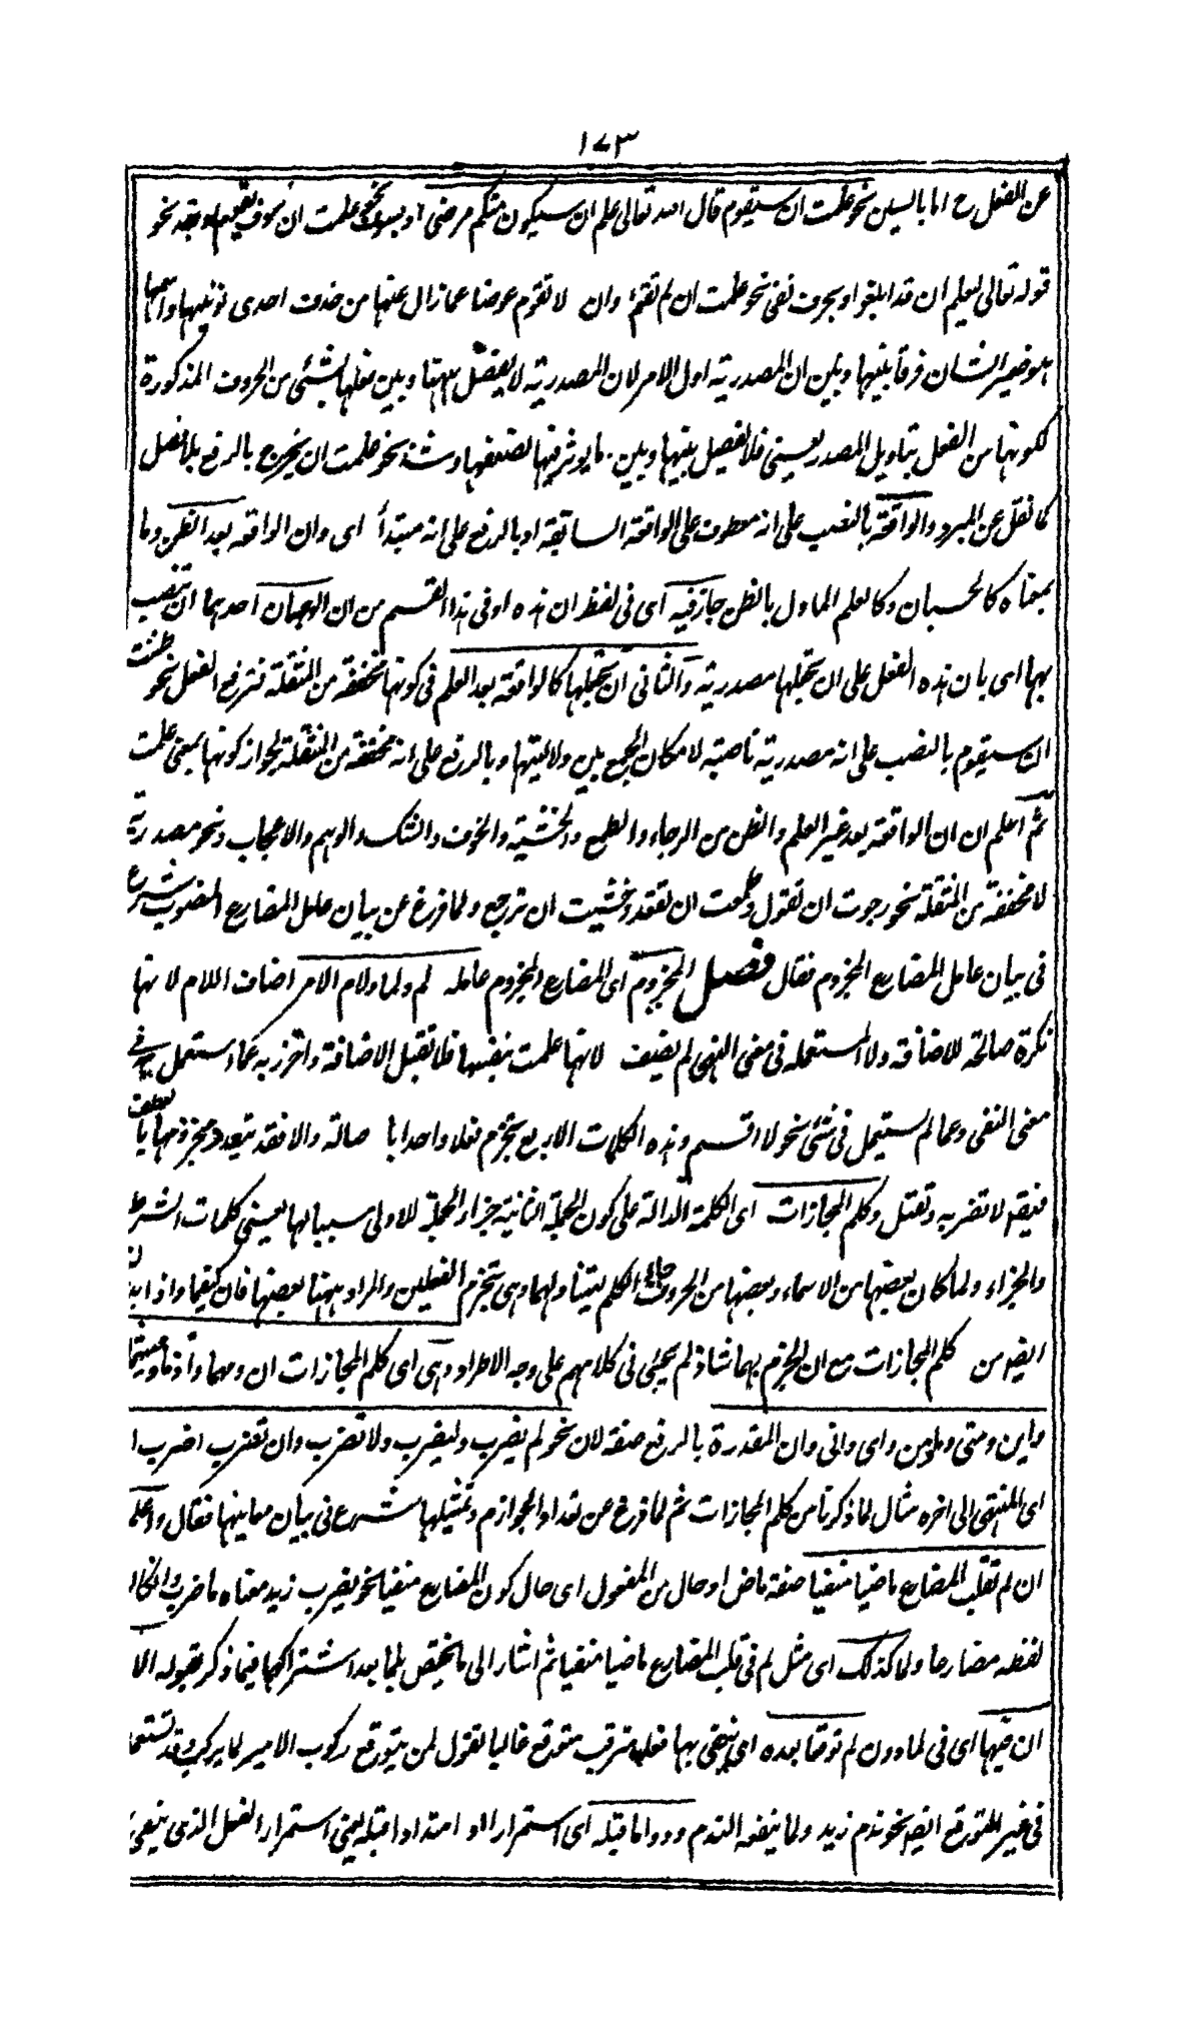 ١٧٣
عن الفعل ح اما بالسين نحو علمت ان سيقوم قال الله تعالى علم ان سيكون منكم مرضى او بسوف نحو علمت ان سوف يقوم او بقد نحو
قوله تعالى ليعلم ان قد ابلغوا او بحرف نفى نحو علمت ان لم تقم وان لا تقوم عوضا عما زال عنها من حذف احدى نونيها واسمها
هو ضمير الشان فرقا بينها وبين ان المصدرية اول الامر لان المصدرية لا يفصل بينها وبين فعلها بشئى من الحروف المذكورة
لكونها من الفعل بتاويل المصدر يعنى فلا يفصل بينها وبين ما يوثر فيها لضعفها وشذ نحو علمت ان يخرج بالرفع بلا فصل
كما نقل عن المبرد والواقعة بالنصب على انه معطوف على الواقعة السابقة او بالرفع على انه مبتدأ اى وان الواقعه بعد الظن وما
بمعناه كالحسبان وكالعلم الماول بالظن جاز فيه اى فى لفظ ان هذه او فى هذا القسم من ان الوجهان احدهما ان تنصب
بها اى بان هذه الفعل على ان تجعلها مصدرية والثانى ان تجعلها كالواقعة بعد العلم فى كونها مخففة من المثقلة فترفع الفعل نحو ظننت
ان سيقوم بالنصب على انه مصدرية ناصبة لامكان الجمع بين ولايتها وبالرفع على انه مخففة من المثقلة لجواز كونها بمعنى علمت
ثم اعلم ان ان الواقعة بعد غير العلم والظن من الرجاء والطمع والخشية والخوف والشك والوهم والاعجاب ونحو مصدرية
لا مخففة من المثقلة نحو رجوت ان تقول وطمعت ان تقعد وخشيت ان ترجع ولما فرغ عن بيان عامل المضارع المنصوب شرع
فى بيان عامل المضارع المجزوم فقال فصل المجزوم اى المضارع المجزوم عامله لم ولما ولام الامر اضاف اللام لانها
نكرة صالحة للاضافة ولا المستعمله فى معنى النهى لم يضف لانها علمت بنفسها فلا تقبل الاضافة واحترز به عما استعمل فى
معنى النفى وعما لم يستعمل فى شئى نحو لا اقسم وهذه الكلمات الاربع تجزم فعلا واحدا با صالة والا فقد يتعدد مجزومها با لعطف
فيقه لا تضرب وتقتل وكلم المجازات اى الكلمة الدالة على كون الجملة الثانية جزاء والجملة الاولى سببا لها يعنى كلمات الشرط
والجزاء ولما كان بعضها من الاسماء وبعضها من الحروف جاء الكلم ليتناولهما وهى تجزم الفعلين والمراد ههنا بعضها فان كيفما واذا
ايضه من كلم المجازات مع ان الجزم بهما شاذ لم يجيئى فى كلامهم على وجه الاطراد وهى اى كلم المجازات ان ومهما واذما وحيثما
واين ومتى وما ومن واى وانى وان المقدرة بالرفع صفة لان نحو لم يضرب وليضرب ولا تضرب وان تضرب اضرب ا
اى المنتهى الى اخره مثال لما ذكرنا من كلم المجازات ثم لما فرغ عن تعداد الجوازم وتمثيلها شرع فى بيان معانيها فقال واعلم
ان لم تقلب المضارع ماضيا منفيا صفة ماض او حال من المفعول اى حال كون المضارع منفيا نحو يضرب زيد معناه ما ضرب وان كان
لفظه مضارعا ولما كذلك اى مثل لم فى قلب المضارع ماضيا منفيا ثم اشار الى ما يختص بلما بعد اشتراكهما فيما ذكر بقوله الا
ان فيها اى فى لما دون لم توقعا بعده اى ينفى بها فعل مترقب متوقع غالبا تقول لمن يتوقع ركوب الامير لما يركب وقد تستعمل
فى غير المتوقع ايضه نحو ندم زيد ولما ينفعه الندم ودواما قبله اى استمرارا او امتدادا قبله يعنى استمرار الفعل الذى ينفى